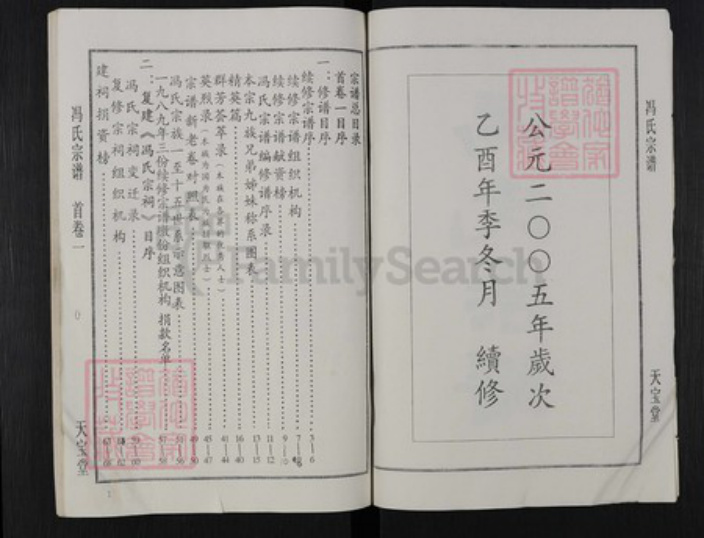 冯氏宗谱
天宝堂
公元二〇〇五年歲次
乙酉年季冬月 續修
宗谱总目录
首卷一目序
一:修谱目序
续修宗谱序 3—6
续修宗谱组织机构
续修宗谱献资榜 9
冯氏宗谱编修谱序录 11—12
本宗九族兄弟姊妹称系图表 13—15
精英篇 16—40
群芳荟萃录(本族在各界的优秀人士) 41—44
英烈录 45—47
宗谱新老卷对照表
冯氏宗族一至十五世系示意图表
一九八九年三份续修宗谱缴份组织机构 捐款名单
二:复建《冯氏宗祠》目序
冯氏宗祠变迁录
复修宗祠组织机构
建祠捐资榜
冯氏宗谱 首卷一
天宝堂
FamilySearch